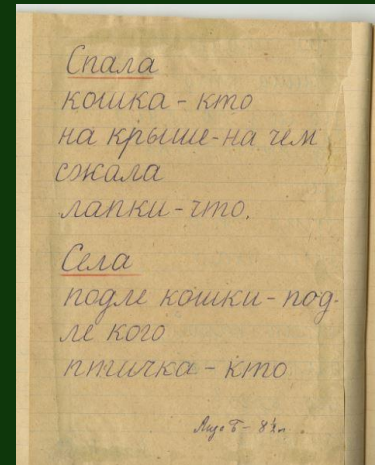 Спала
кошка - кто
на крыше - на чем
сжала
лапки - что.
Села
подле кошки - под-
ле кого
птичка - кто